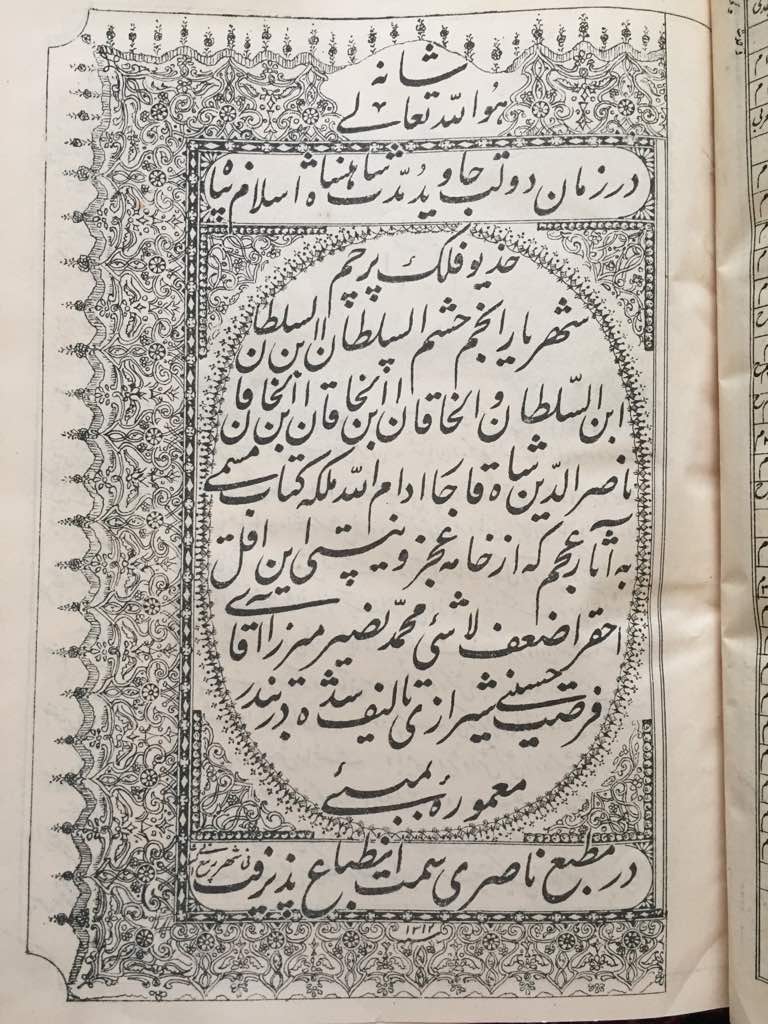 هو الله تعالی شانه
در زمان دولت جاوید مدت شاهنشاه اسلام پناه
خدیو فلک پرچم
شهریار انجم حشم السلطان ابن السلطان
ابن السلطان والخاقان ابن الخاقان ابن الخاقان
ناصر الدین شاه قاجار ادام الله ملکه کتاب مسمی
به آثار عجم که از خامه عجز و نیستی این اقل
احقر اضعف لاشئ محمد نصیر میرزا آقای
فرصت حسینی شیرازی تالیف شده در بندر
معمورهٔ بمبئی
در مطبع ناصری سمت انطباع پذیرفت فی شهر ربیع
۱۳۱۴